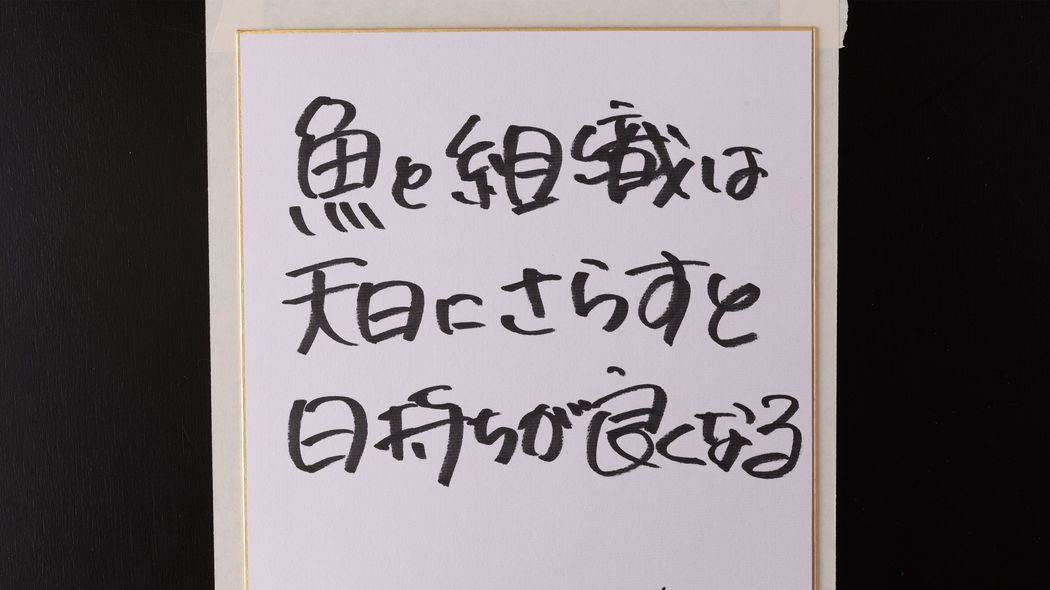 魚と組織は
天日にさらすと
日持ちが良くなる